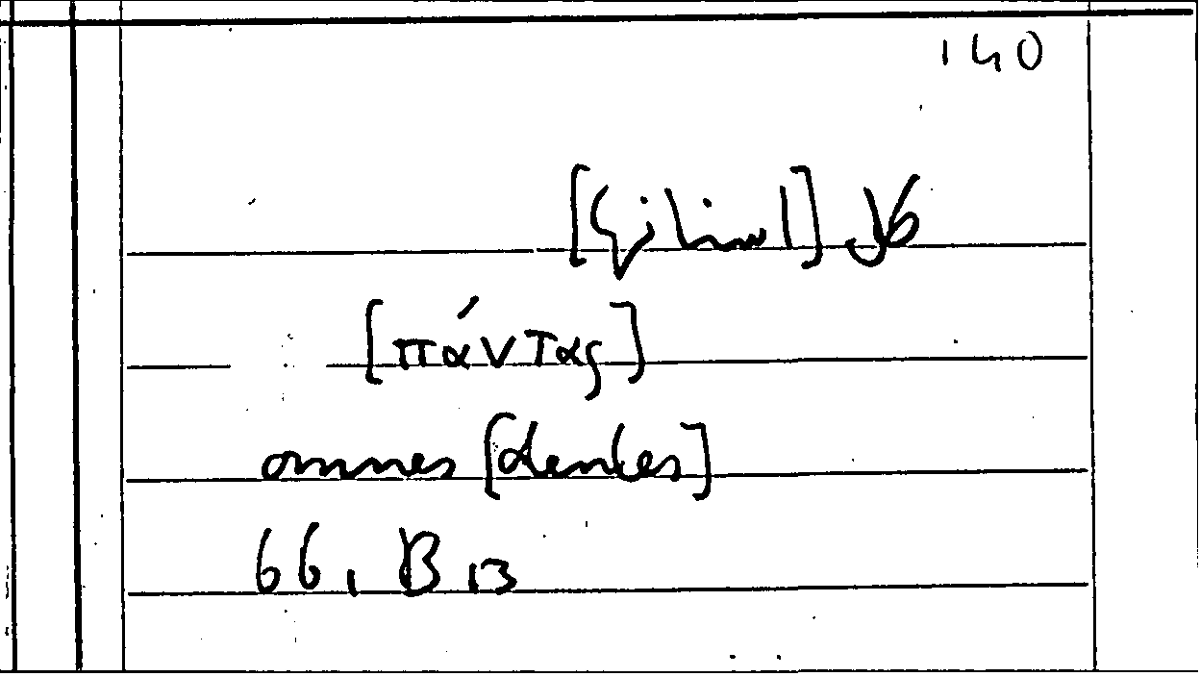 140
كل [اسنانهم]
[πάντας]
omnes [dentes]
66, B 13